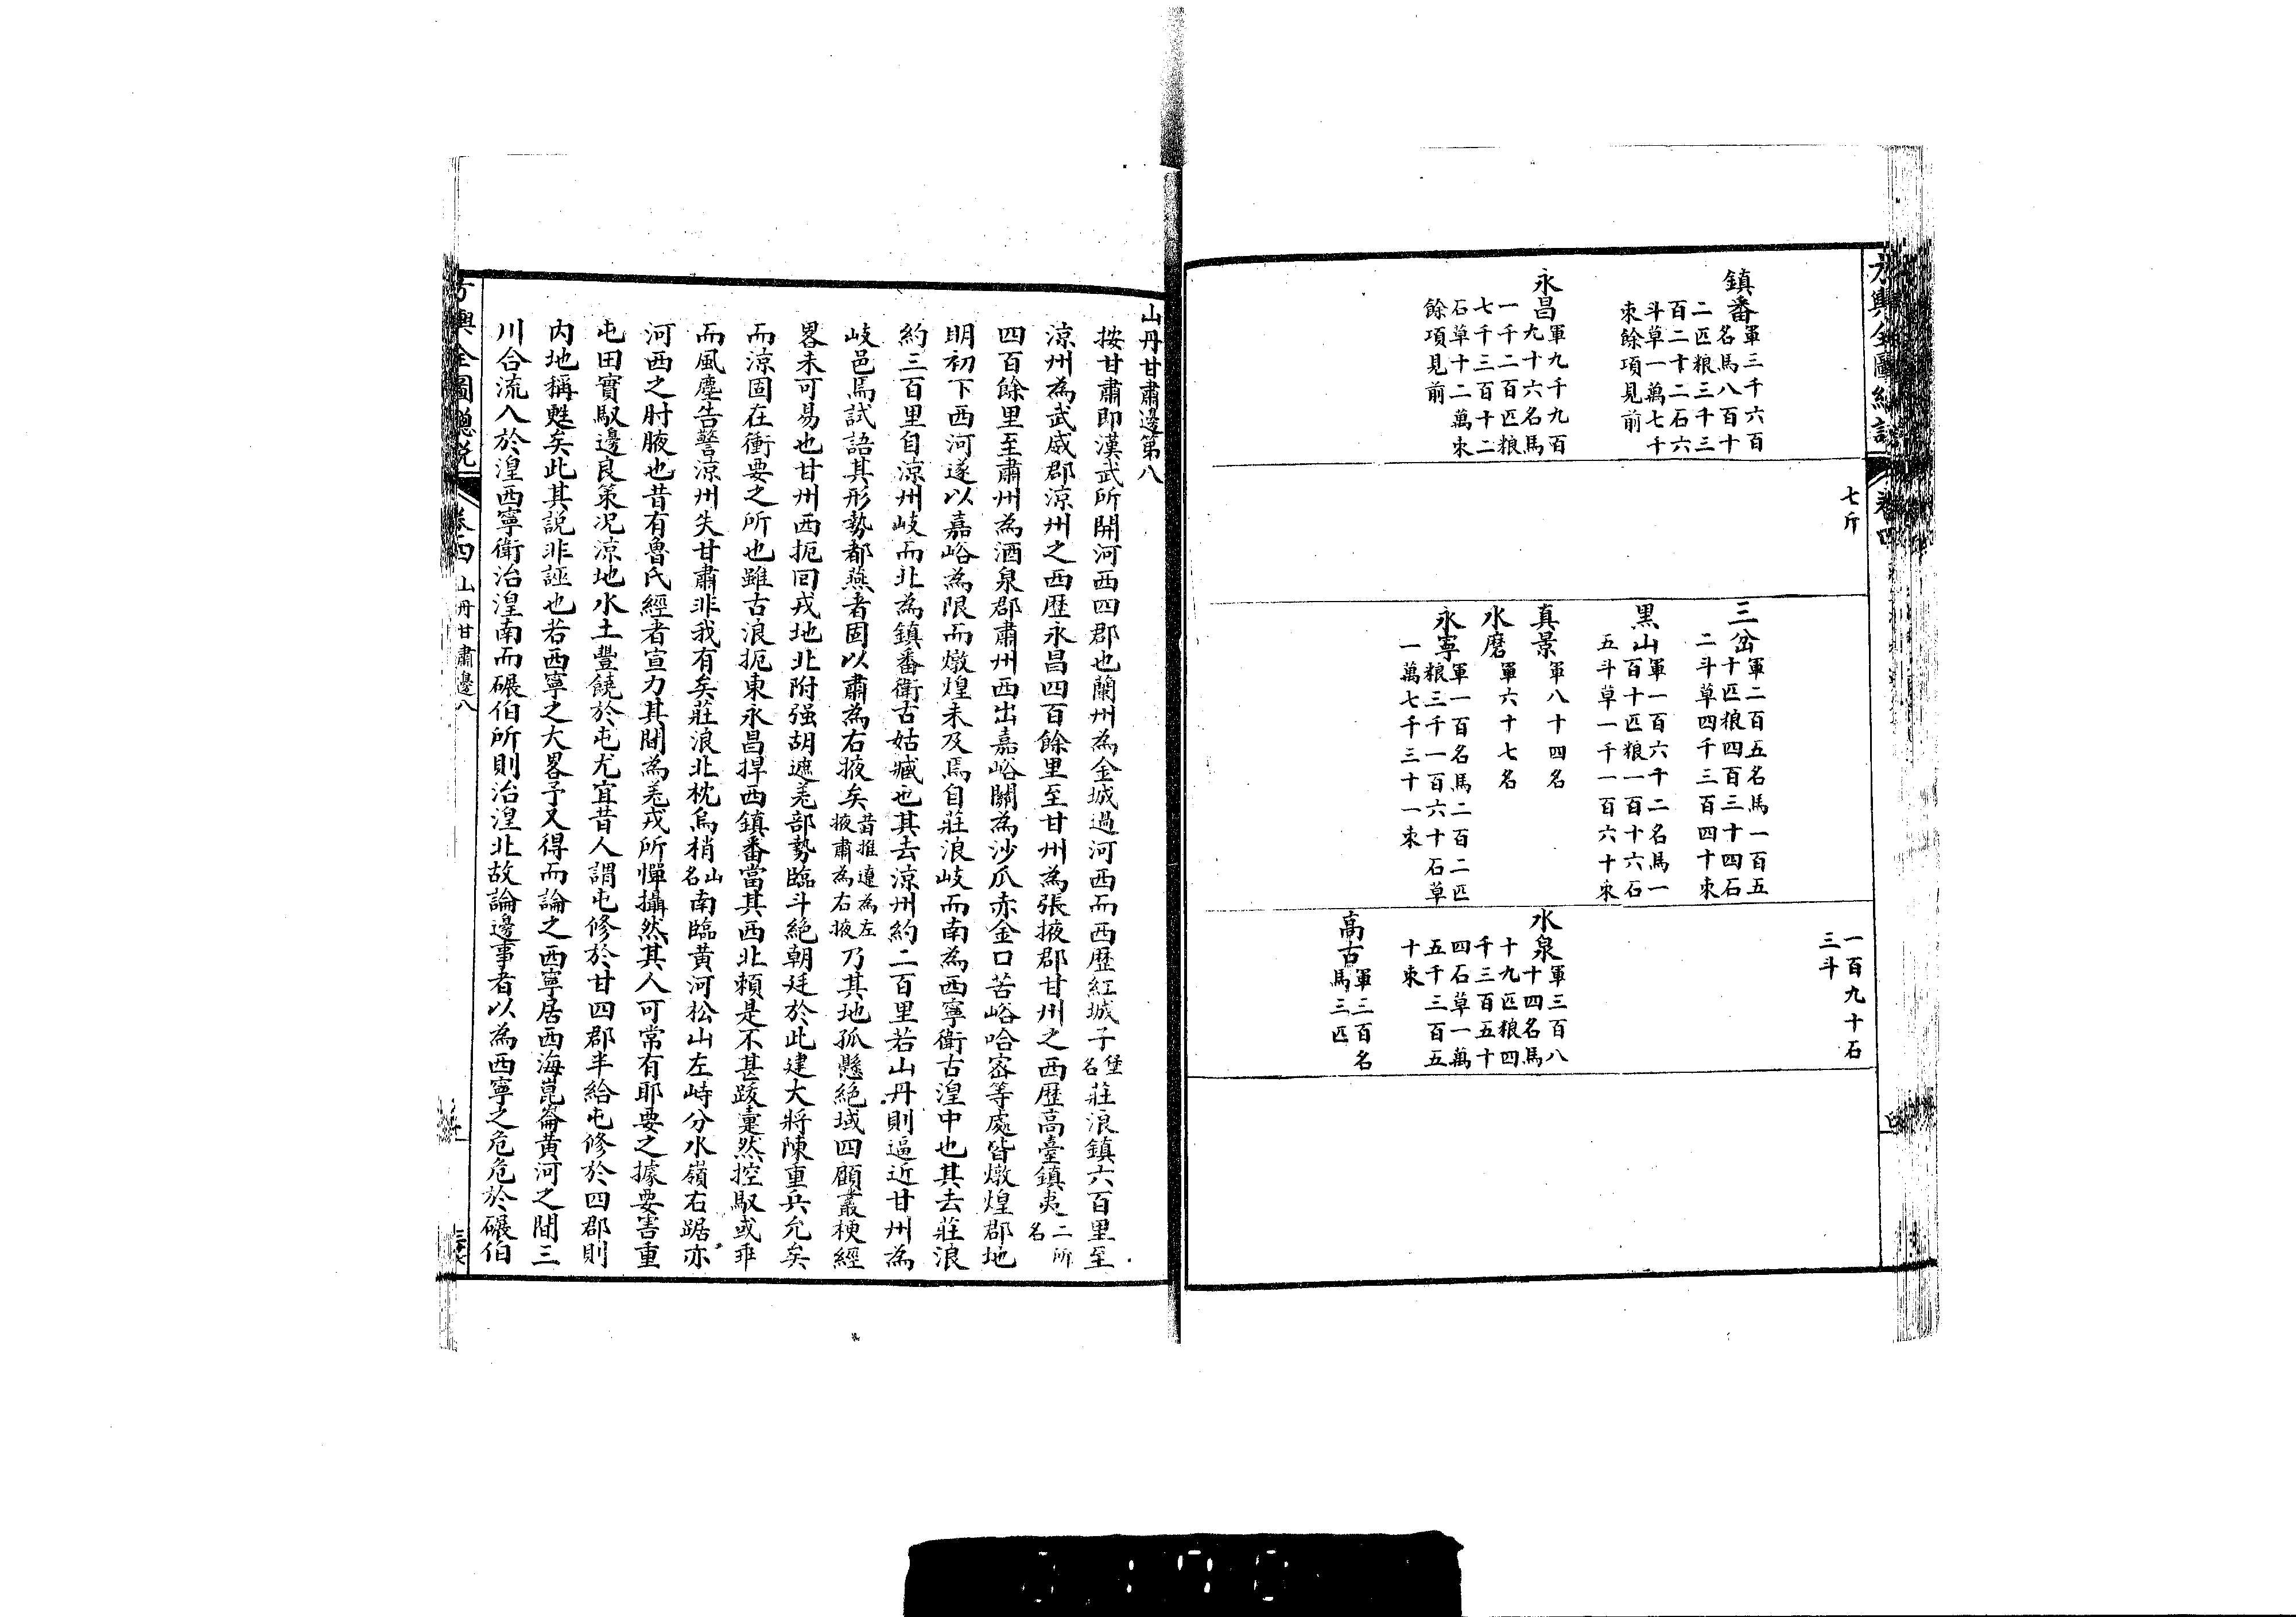 七斤
鎮番軍三千六百
名馬八百十
二匹粮三千三
百二十二石六
斗草一萬七千
束餘項見前
永昌軍九千九百
九十六名馬
一千二百匹粮
七千三百十二
石草十二萬束
餘項見前
三岔軍二百五名馬一百五
十匹粮四百三十四石
二斗草四千三百四十束
黑山軍一百六千二名馬一
百十匹粮一百十六石
五斗草一千一百六十束
真景軍八十四名
水磨軍六十七名
永寧軍一百名馬二百二匹
粮三千一百六十石草
一萬七千三十一束
一百九十石
三斗
水泉軍三百八
十四名馬
十九匹粮四
千三百五十
四石草一萬
五千三百五
十束
高古軍三百名
馬三匹
山丹甘肅邊第八
按甘肅即漢武所開河西四郡也蘭州為金城過河西而西歷紅城子堡名莊浪鎮六百里至
涼州為武威郡涼州之西歷永昌四百餘里至甘州為張掖郡甘州之西歷高臺鎮夷二所名
四百餘里至肅州為酒泉郡肅州西出嘉峪關為沙瓜赤金口苦峪哈密等處皆燉煌郡地
明初下西河遂以嘉峪為限而燉煌未及焉自莊浪岐而南為西寧衛古湟中也其去莊浪
約三百里自涼州岐而北為鎮番衛古姑臧也其去涼州約二百里若山丹則逼近甘州為
岐邑焉試語其形勢都燕者固以肅為右掖矣昔推遼為左掖肅為右掖乃其地孤懸絕域四顧叢梗經
畧未可易也甘州西扼回戎地北附强胡遮羌部勢臨斗絕朝廷於此建大將陳重兵允矣
而涼固在衝要之所也雖古浪扼東永昌捍西鎮番當其西北頼是不甚跋疐然控馭或乖
而風塵告警涼州失甘肅非我有矣莊浪北枕烏梢山名南臨黃河松山左峙分水嶺右踞亦
河西之肘腋也昔有魯氏經者宣力其間為羌戎所憚攝然其人可常有耶要之據要害重
屯田實馭邊良策况涼地水土豐饒於屯尤宜昔人謂屯修於甘四郡半給屯修於四郡則
內地稱甦矣此其說非誣也若西寧之大畧予又得而論之西寧居西海崑崙黃河之間三
川合流入於湟西寧衛治湟南而碾伯所則治湟北故論邊事者以為西寧之危危於碾伯
方輿全圖總說 卷四 山丹甘肅邊八